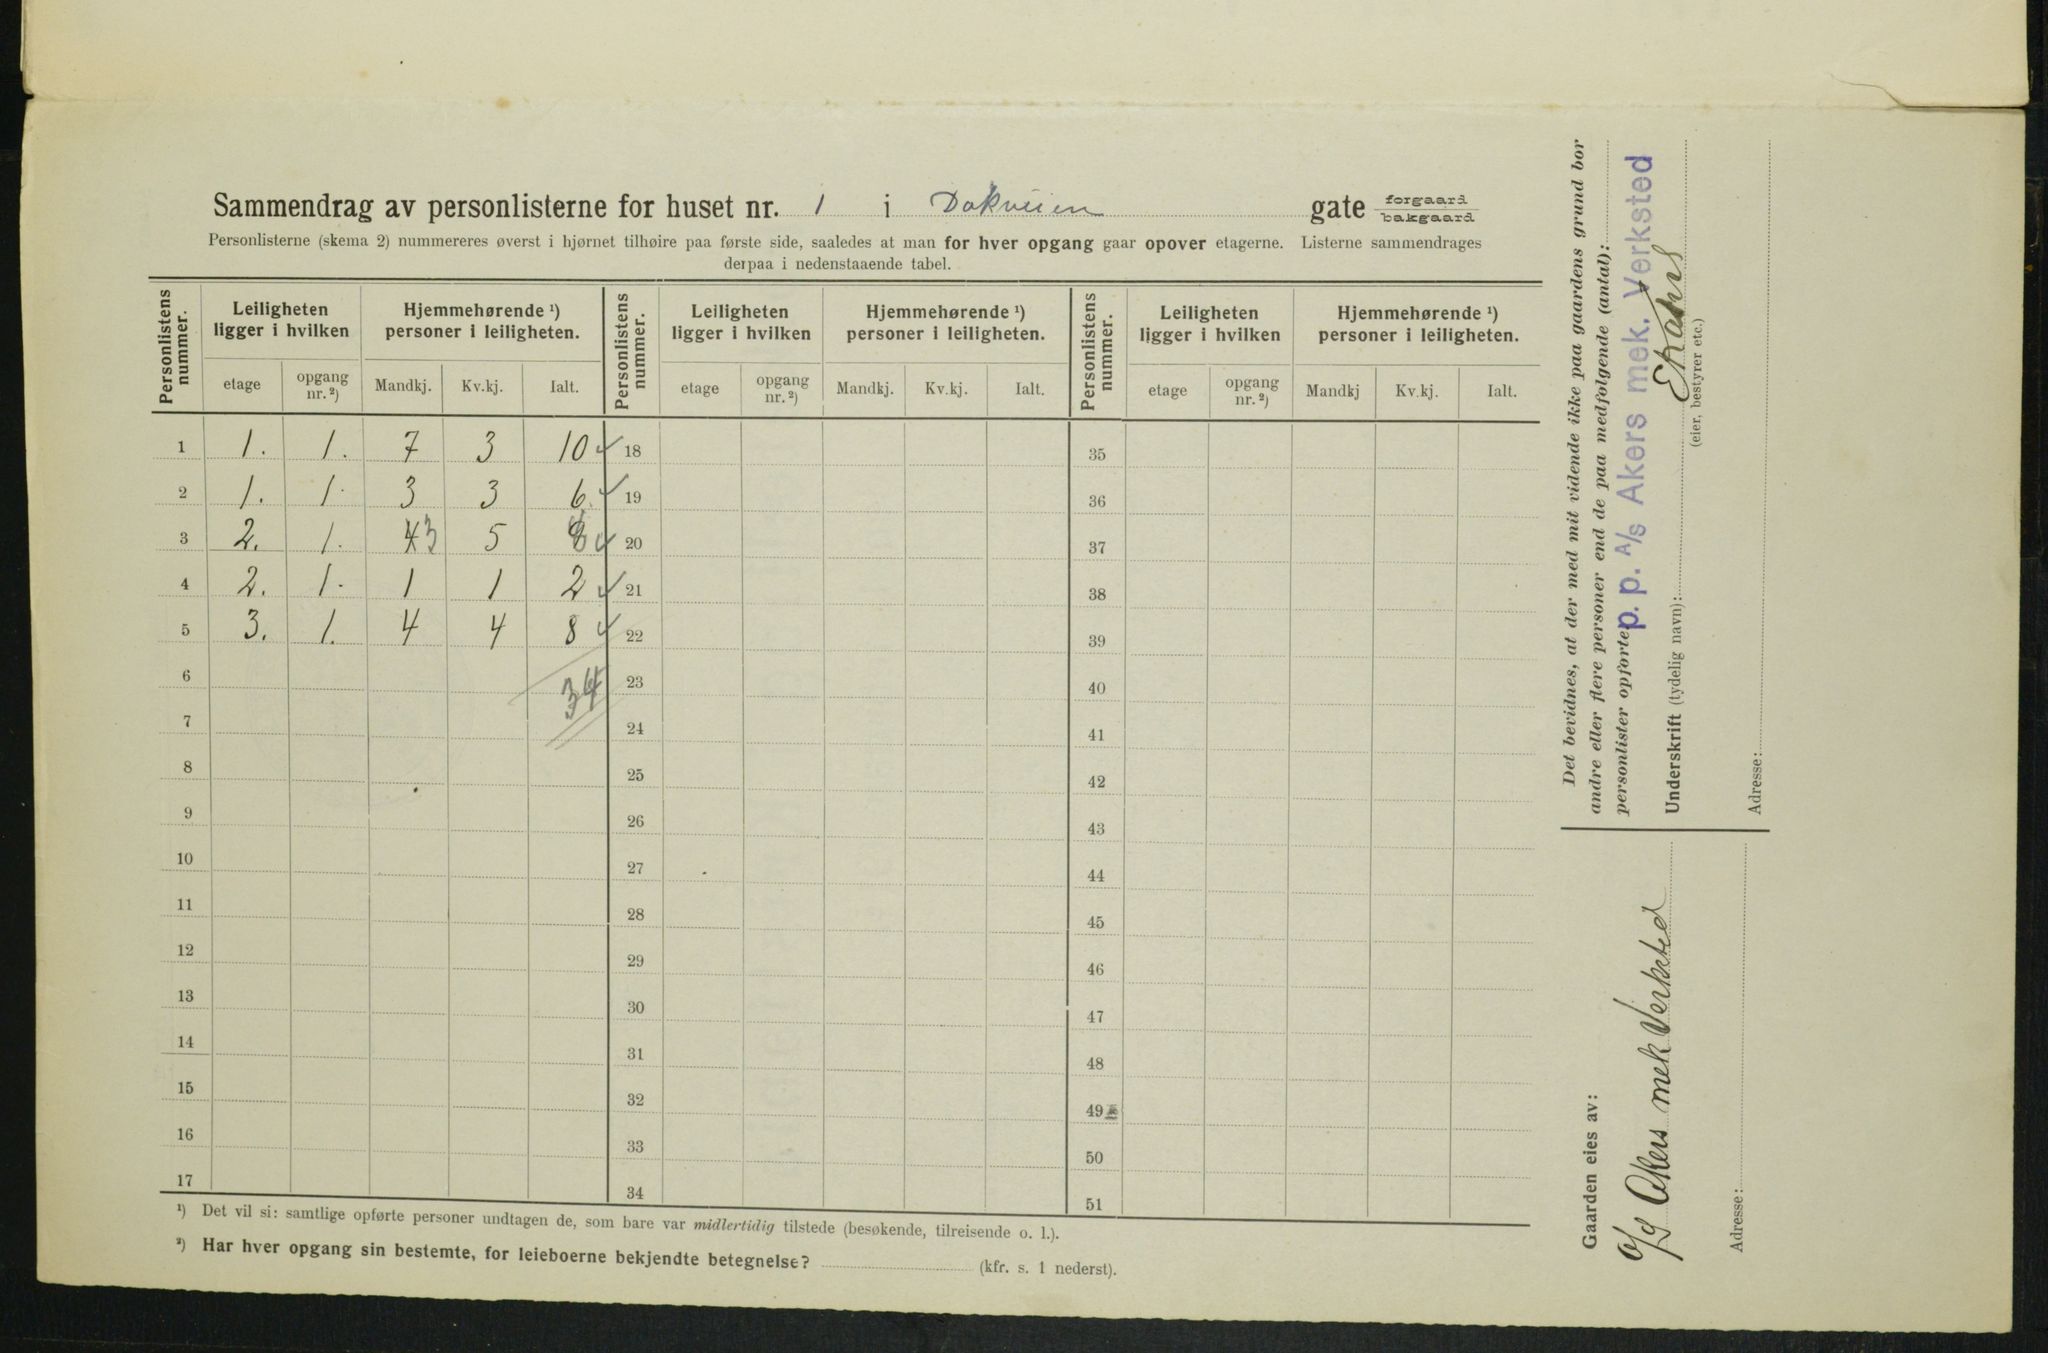 Sammendrag av personlisterne for huset nr. 1 i Dokveien gate forgaard bakgaard
Personlisterne (skema 2) nummereres øverst i hjørnet tilhøire paa første side, saaledes at man for hver opgang gaar opover etagerne. Listerne sammendrages
derpaa i nedenstaaende tabel.
Personlistens nummer. Leiligheten ligger i hvilken Hjemmehørende ¹) personer i leiligheten. Personlistens nummer. Leiligheten ligger i hvilken Hjemmehørende ¹) personer i leiligheten. Personlistens nummer. Leiligheten ligger i hvilken Hjemmehørende ¹) personer i leiligheten.
etage opgang nr. ²) Mandkj. Kv.kj. Ialt. etage opgang nr. ²) Mandkj. Kv.kj. Ialt. etage opgang nr. ²) Mandkj Kv.kj. Ialt.
1 1. 1. 7 3 10 18 35
2 1. 1. 3 3 6. 19 36
3 2. 1. 4 3 5 8 20 37
4 2. 1. 1 1 2 21 38
5 3. 1. 4 4 8 22 39
6 34 23 40
7 24 41
8 25 42
9 26 43
10 27 44
11 28 45
12 29 46
13 30 47
14 31 48
15 32 49
16 33 50
17 34 51
¹) Det vil si: samtlige opførte personer undtagen de, som bare var midlertidig tilstede (besøkende, tilreisende o. l.).
²) Har hver opgang sin bestemte, for leieboerne bekjendte betegnelse? (kfr. s. 1 nederst).
Det bevidnes, at der med mit vidende ikke paa gaardens grund bor
andre eller flere personer end de paa medfølgende (antal):
personlister opførte.
p. p. A/s Akers mek. Verksted
Underskrift (tydelig navn):
(eier, bestyrer etc.)
Adresse:
Gaarden eies av:
Akers mek Verksted
Adresse: